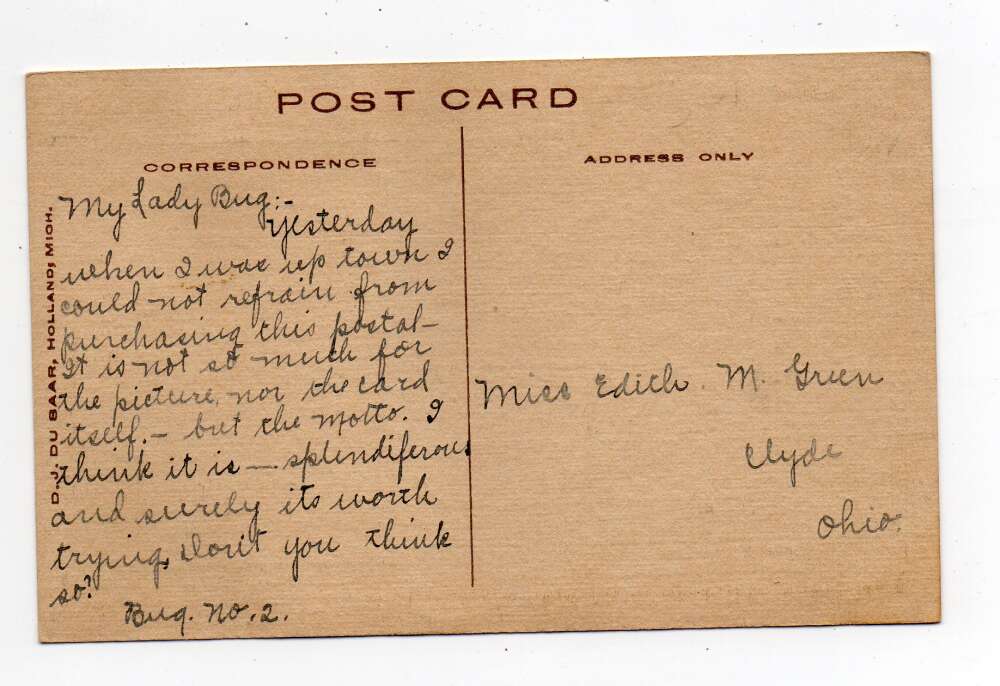 POST CARD
CORRESPONDENCE
ADDRESS ONLY
D. J. DU SAAR, HOLLAND, MICH.
My Lady Bug:-
Yesterday
when I was up town I
could not refrain from
purchasing this postal-
It is not so much for
the picture, nor the card
itself.- but the Motto. I
think it is - splendiferous
and surely its worth
trying, Don't you think
so?
Bug. No. 2.
Miss Edith. M. Green
Clyde
Ohio.